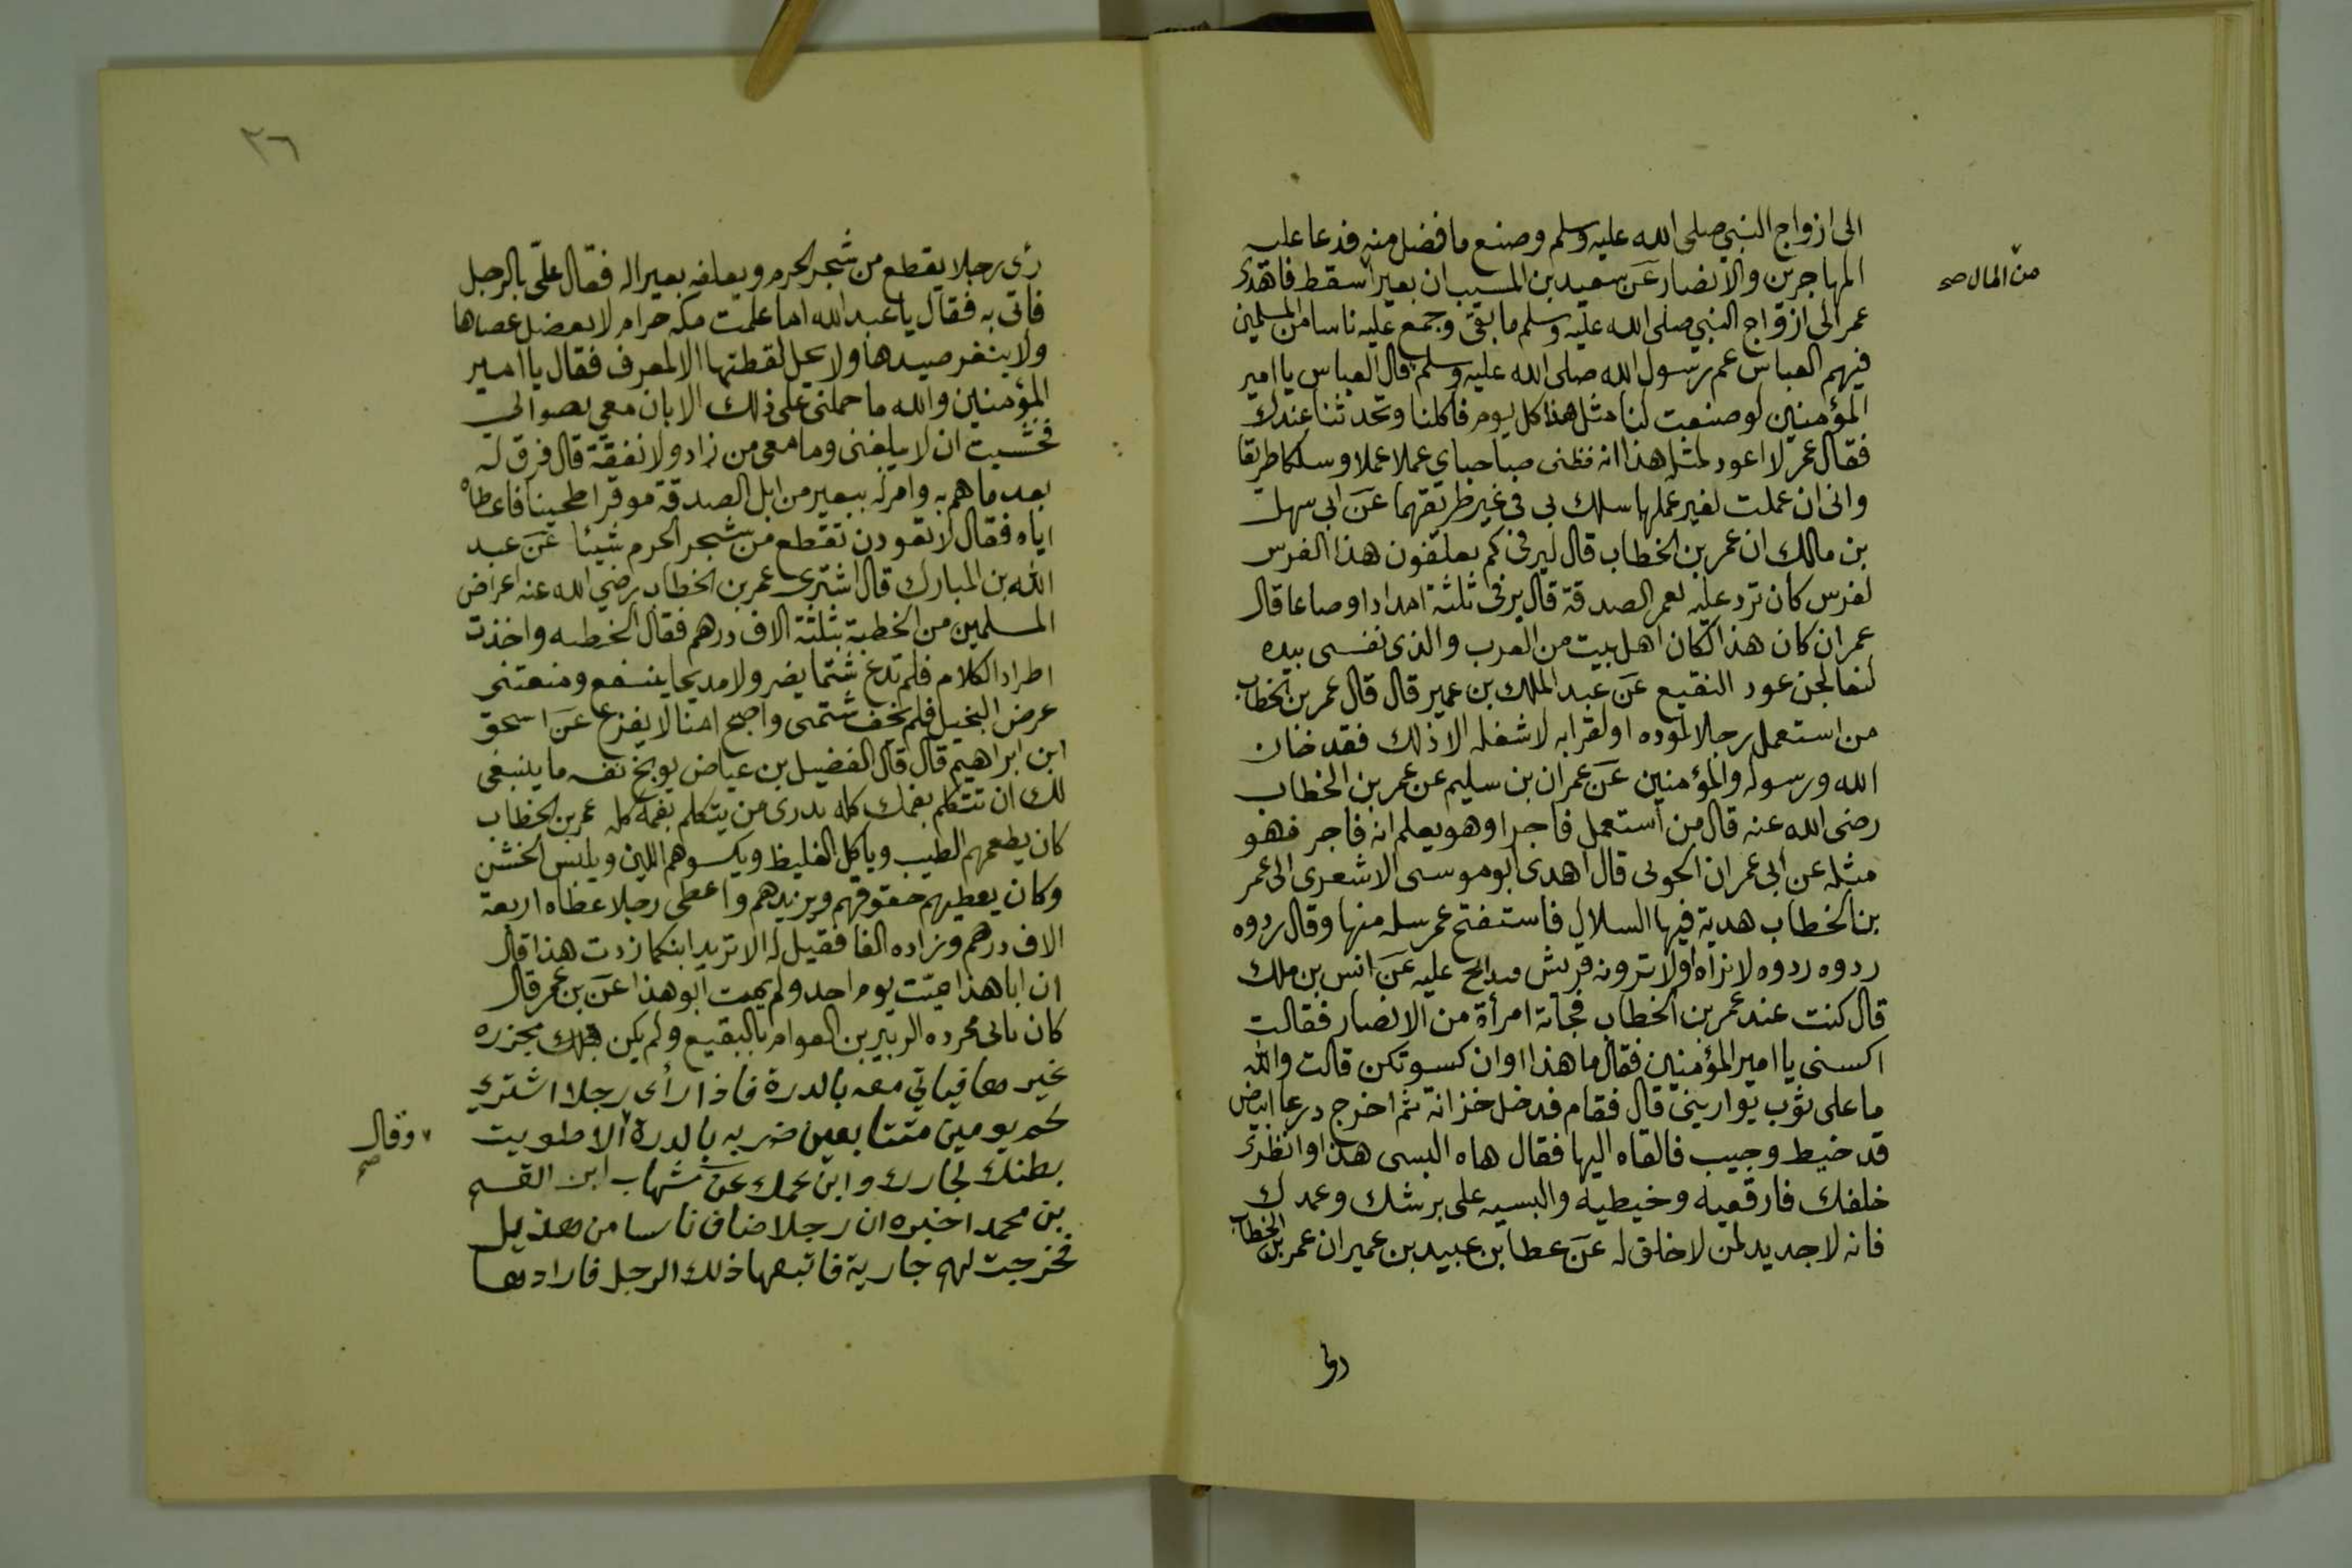 الى ازواج النبي صلى الله عليه وسلم وصنع ما فضل منه فدعا عليه
المهاجرين والانصار عن سعيد بن المسيب ان بعيرا سقط فاهدى
من المال صح
عمر الى ازواج النبي صلى الله عليه وسلم ما بقى وجمع عليه ناسا من المسلمين
فيهم العباس عم رسول الله صلى الله عليه وسلم قال العباس يا امير
المؤمنين لو صنعت لنا مثل هذا كل يوم فاكلنا وتحدثنا عندك
فقال عمر لا اعود لمثل هذا انه مضى صاحباي عملا عملا وسلكا طريقا
وانى ان عملت لغير عملها سلك بى فى غير طريقهما عن ابى سهل
بن مالك ان عمر بن الخطاب قال ليرفى كم تعلفون هذا الفرس
لفرس كان ترد عليه لعمر الصدقة قال يرفى ثلثة امدادا وصاعا قال
عمر ان كان هذا لكان اهل بيت من العرب والذى نفسى بيده
لتعالجن عود النقيع عن عبد الملك بن عمير قال قال عمر بن الخطاب
من استعمل رجلا لموده او لقرابه لا شغله الا ذلك فقد خان
الله ورسوله والمؤمنين عن عمران بن سليم عن عمر بن الخطاب
رضى الله عنه قال من استعمل فاجرا وهو يعلم انه فاجر فهو
مثله عن ابى عمران الجونى قال اهدى ابو موسى الاشعرى الى عمر
بن الخطاب هدية فيها السلال فاستفتح عمر سله منها وقال ردوه
ردوه ردوه لا نراه اولا ترونه قريش عليه عن انس بن ملك
قال كنت عند عمر بن الخطاب فجاته امرأة من الانصار فقالت
اكسنى يا امير المؤمنين فقال ما هذا اوان كسوتكن قالت والله
ما على ثوب يواريني قال فقام فدخل خزانة ثم اخرج درعا ابيض
قد خيط وجيب فالقاه اليها فقال هاه البسى هذا وانظرى
خلقك فارقعيه وخيطيه والبسيه على برشك وعمدك
فانه لا جديد لمن لا خلق له عن عطا بن عبيد بن عمير ان عمر بن الخطاب
رأى
٢٦
رأى رجلا يقطع من شجر الحرم ويعلفه بعيرا له فقال علىّ بالرجل
فاتى به فقال يا عبد الله اما علمت مكه حرام لا يعضل عصاها
ولا ينفر صيدها ولا يحل لقطتها الا لمعرف فقال يا امير
المؤمنين والله ما حملنى على ذلك الا بان معي
فخشيت ان لا يبلغنى وما معى من زاد ولا نفقة قال فرق له
بعد ما هم به وامر له ببعير من ابل الصدقة موقرا طحينا فاعطاه
اياه فقال لا تعودن تقطع من شجر الحرم شيئا عن عبد
الله بن المبارك قال اشترى عمر بن الخطاب رضي الله عنه اعراض
المسلمين من الخطبة بثلثة الاف درهم فقال الخطبه واخذت
اطرار الكلام فلم تدع شتما يضر ولا مديحا ينفع ومنعتنى
عرض البخيل فلم يخف شتمى واصبح امنا لا يفزع عن اسحق
ابن ابراهيم قال قال الفضيل بن عياض يوبخ نفسه ما ينبغى
لك ان تتكلم بفمك كله تدرى من يتكلم بفمه كله عمر بن الخطاب
كان يطعمهم الطيب وياكل الغليظ ويكسوهم اللين ويلبس الخشن
وكان يعطيهم حقوقهم ويزيدهم واعطى رجلا عطاه اربعة
الاف درهم وزاده الفا فقيل له الا تزيد ابنك كما زدت هذا قال
ان ابا هذا هيّت يوم احد ولم يهيت ابو هذا عن بن عمر قال
كان ياتى مجزره الزبير بن العوام بالبقيع ولم يكن مجزره
غيرها فياتي معه بالدرة فاذا رأى رجلا اشتري
لحم يومين متتابعين ضربه بالدرة الا طويت
وقال صح
بطنك لجارك وابن عمك عن شهاب ابن القسم
بن محمد اخبره ان رجلا ضاف ناسا من هذيل
فخرجت لهم جارية فاتبعها ذلك الرجل فارادها